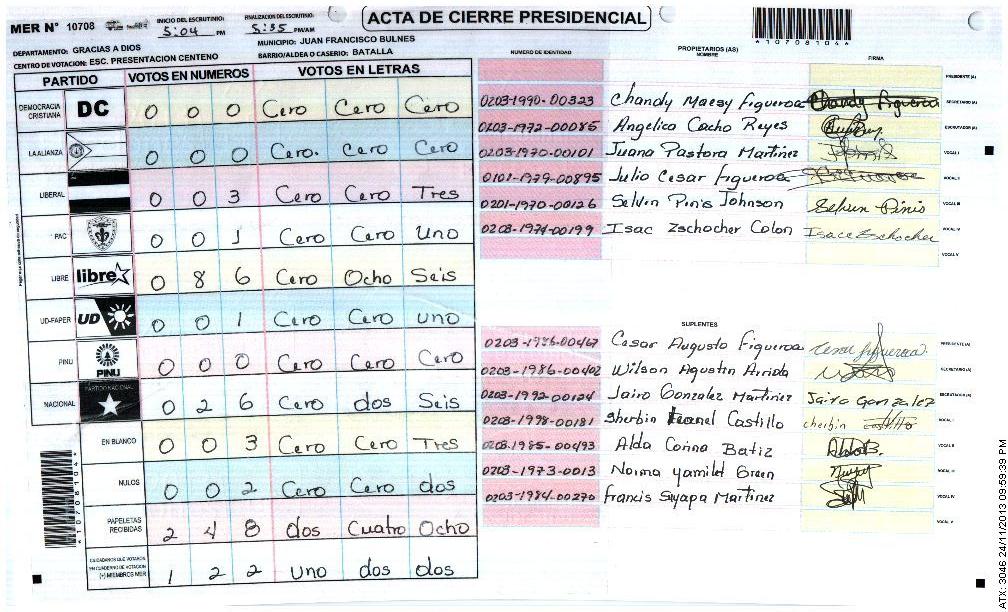 MER N° 10708
INICIO DEL ESCRUTINIO: 5:04 PM
FINALIZACION DEL ESCRUTINIO: 5:35 PM/AM
ACTA DE CIERRE PRESIDENCIAL
*10708104*
DEPARTAMENTO: GRACIAS A DIOS
MUNICIPIO: JUAN FRANCISCO BULNES
CENTRO DE VOTACION: ESC. PRESENTACION CENTENO
BARRIO/ALDEA O CASERIO: BATALLA
PARTIDO VOTOS EN NUMEROS VOTOS EN LETRAS
DEMOCRACIA CRISTIANA DC 0 0 0 Cero Cero Cero
LA ALIANZA 0 0 0 Cero. Cero Cero
LIBERAL 0 0 3 Cero Cero Tres
PAC 0 0 1 Cero Cero uno
LIBRE libre 0 8 6 Cero Ocho Seis
UD-FAPER UD 0 0 1 Cero Cero uno
PINU PINU 0 0 0 Cero Cero Cero
NACIONAL PARTIDO NACIONAL 0 2 6 Cero dos Seis
EN BLANCO 0 0 3 Cero Cero Tres
NULOS 0 0 2 Cero Cero dos
PAPELETAS RECIBIDAS 2 4 8 dos Cuatro Ocho
CIUDADANOS QUE VOTARON EN CUADERNO DE VOTACION (+) MIEMBROS MER 1 2 2 uno dos dos
*10708104*
NUMERO DE IDENTIDAD PROPIETARIOS (AS) NOMBRE FIRMA
PRESIDENTE (A)
0203-1990-00323 Chandy Maesy Figueroa Chandy Figueroa SECRETARIO (A)
0203-1972-00085 Angelica Cacho Reyes ESCRUTADOR (A)
0203-1970-00101 Juana Pastora Martinez VOCAL I
0101-1979-00895 Julio Cesar figueroa VOCAL II
0201-1970-00126 Selvin Pinis Johnson Selvin Pinis VOCAL III
0208-1974-00199 Isac Zschocher Colon Isacc Zschocher VOCAL IV
VOCAL V
SUPLENTES
0203-1986-00467 Cesar Augusto Figueroa Cesar figueroa PRESIDENTE (A)
0203-1986-00402 Wilson Agustin Arriola SECRETARIO (A)
0203-1992-00124 Jairo Gonzalez Martinez Jairo Gonzalez ESCRUTADOR (A)
0203-1998-00181 Sherbin Leonel Castillo cherbin castillo VOCAL I
0203-1985-00493 Alda Corina Batiz Alda B. VOCAL II
0203-1973-0013 Norma yamileth Green VOCAL III
0203-1984-00270 francis Suyapa Martinez VOCAL IV
VOCAL V
ATX: 3046 24/11/2013 09:59:39 PM